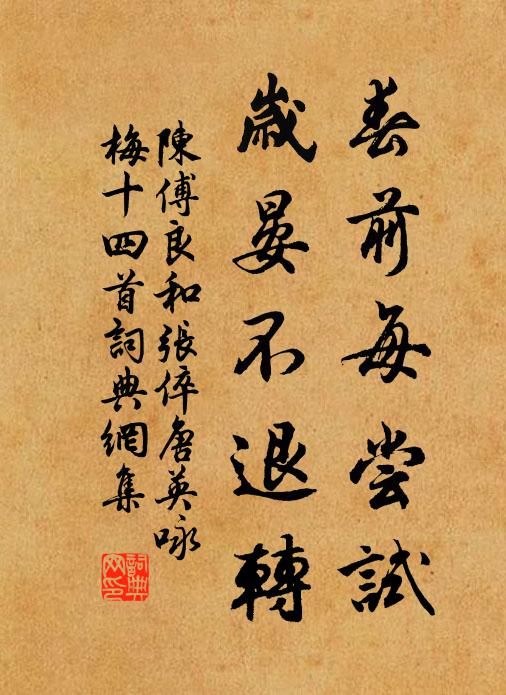 春前每尝試
歲晏不退轉
陳傅良和張倅唐英咏
梅十四首詞典網集
詞典网印